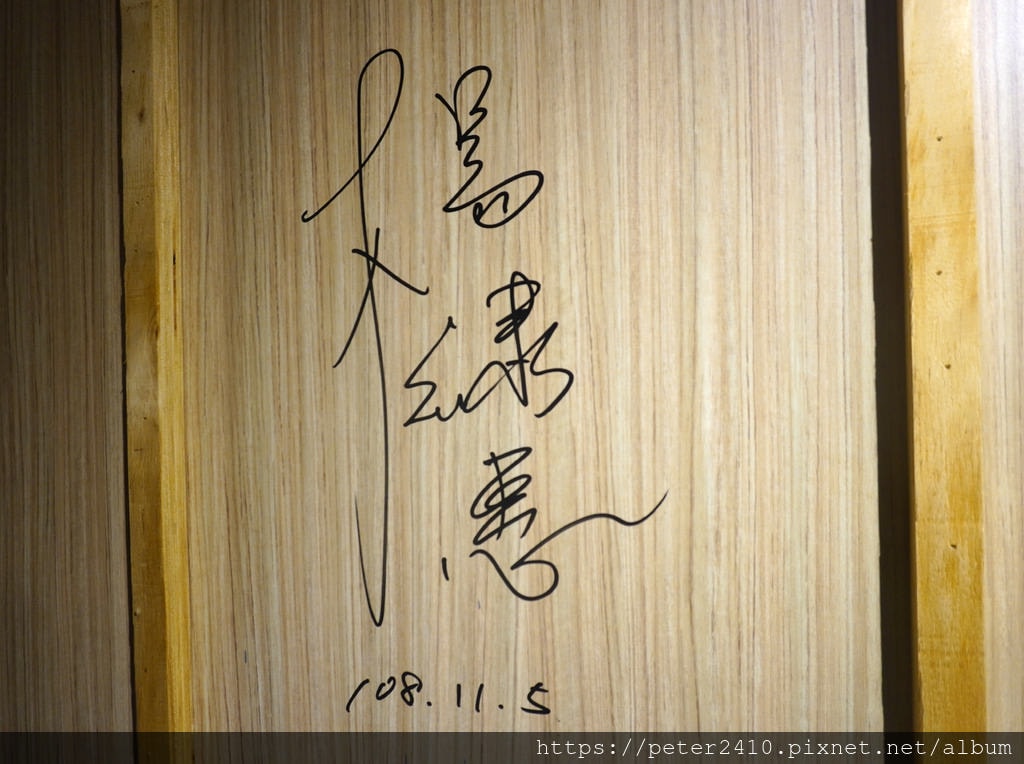 楊繡惠
108.11.5
https://peter2410.pixnet.net/album